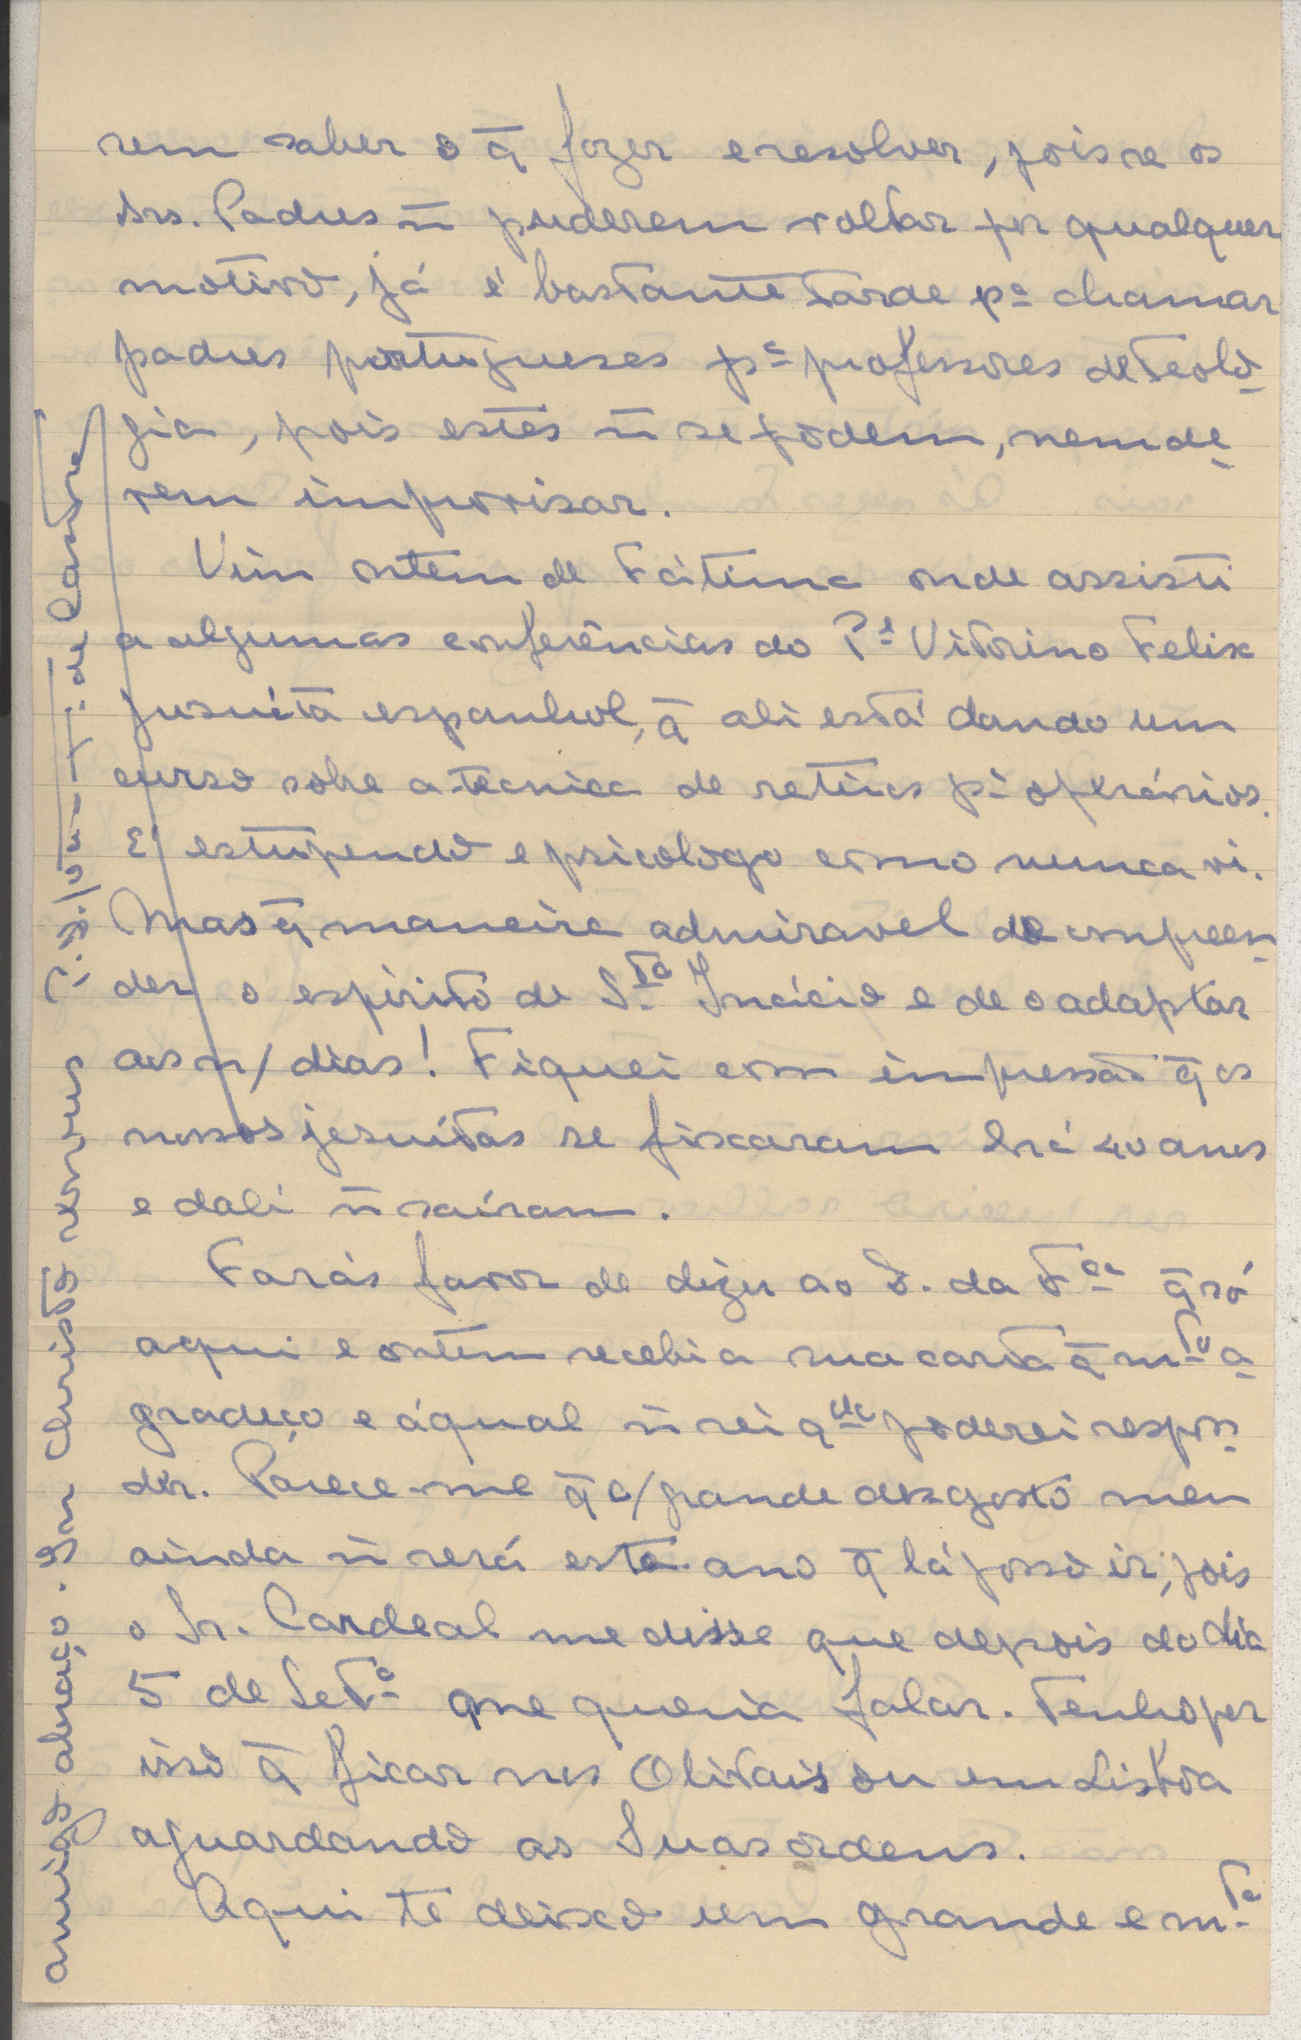 rem saber o q̄ fazer e resolver, pois se os
Srs. Padres ñ puderem voltar por qualquer
motivo, já é bastante tarde pª chamar
padres portugueses pª professores de Teolo-
gia, pois estes ñ se pòdem, nem de-
vem improvisar.
Vim ontem de Fátima onde assisti
a algumas conferências do Pᵉ Vitorino Felix
jesuíta espanhol, q̄ ali está dando um
curso sobre a tecnica de retiros pª operários.
É estupendo e psicologo como nunca vi.
Mas q̄ maneira admiravel de compreen-
der o espírito de S.ᵗᵒ Inácio e de o adaptar
aos n/ dias! Fiquei com impressão q̄ os
nossos jesuítas se fixaram há 40 anos
e dali ñ saíram.
Farás favor de dizer ao D. da Fᶜᵃ q̄ só
aqui e ontem recebi a sua carta q̄ mᵗᵒ a-
gradeço e áqual ñ sei qᵈᵒ poderei respon-
der. Parece-me q̄ c/ grande desgosto meu
ainda ñ será este ano q̄ lá posso ir, pois
o Sr. Cardeal me disse que depois do dia
5 de Setº me queria falar. Tenho por
isso q̄ ficar nos Olivais ou em Lisboa
aguardando as Suas ordens.
Aqui te deixo um grande e mᵗᵒ
amigo abraço. In Christo
de Castro